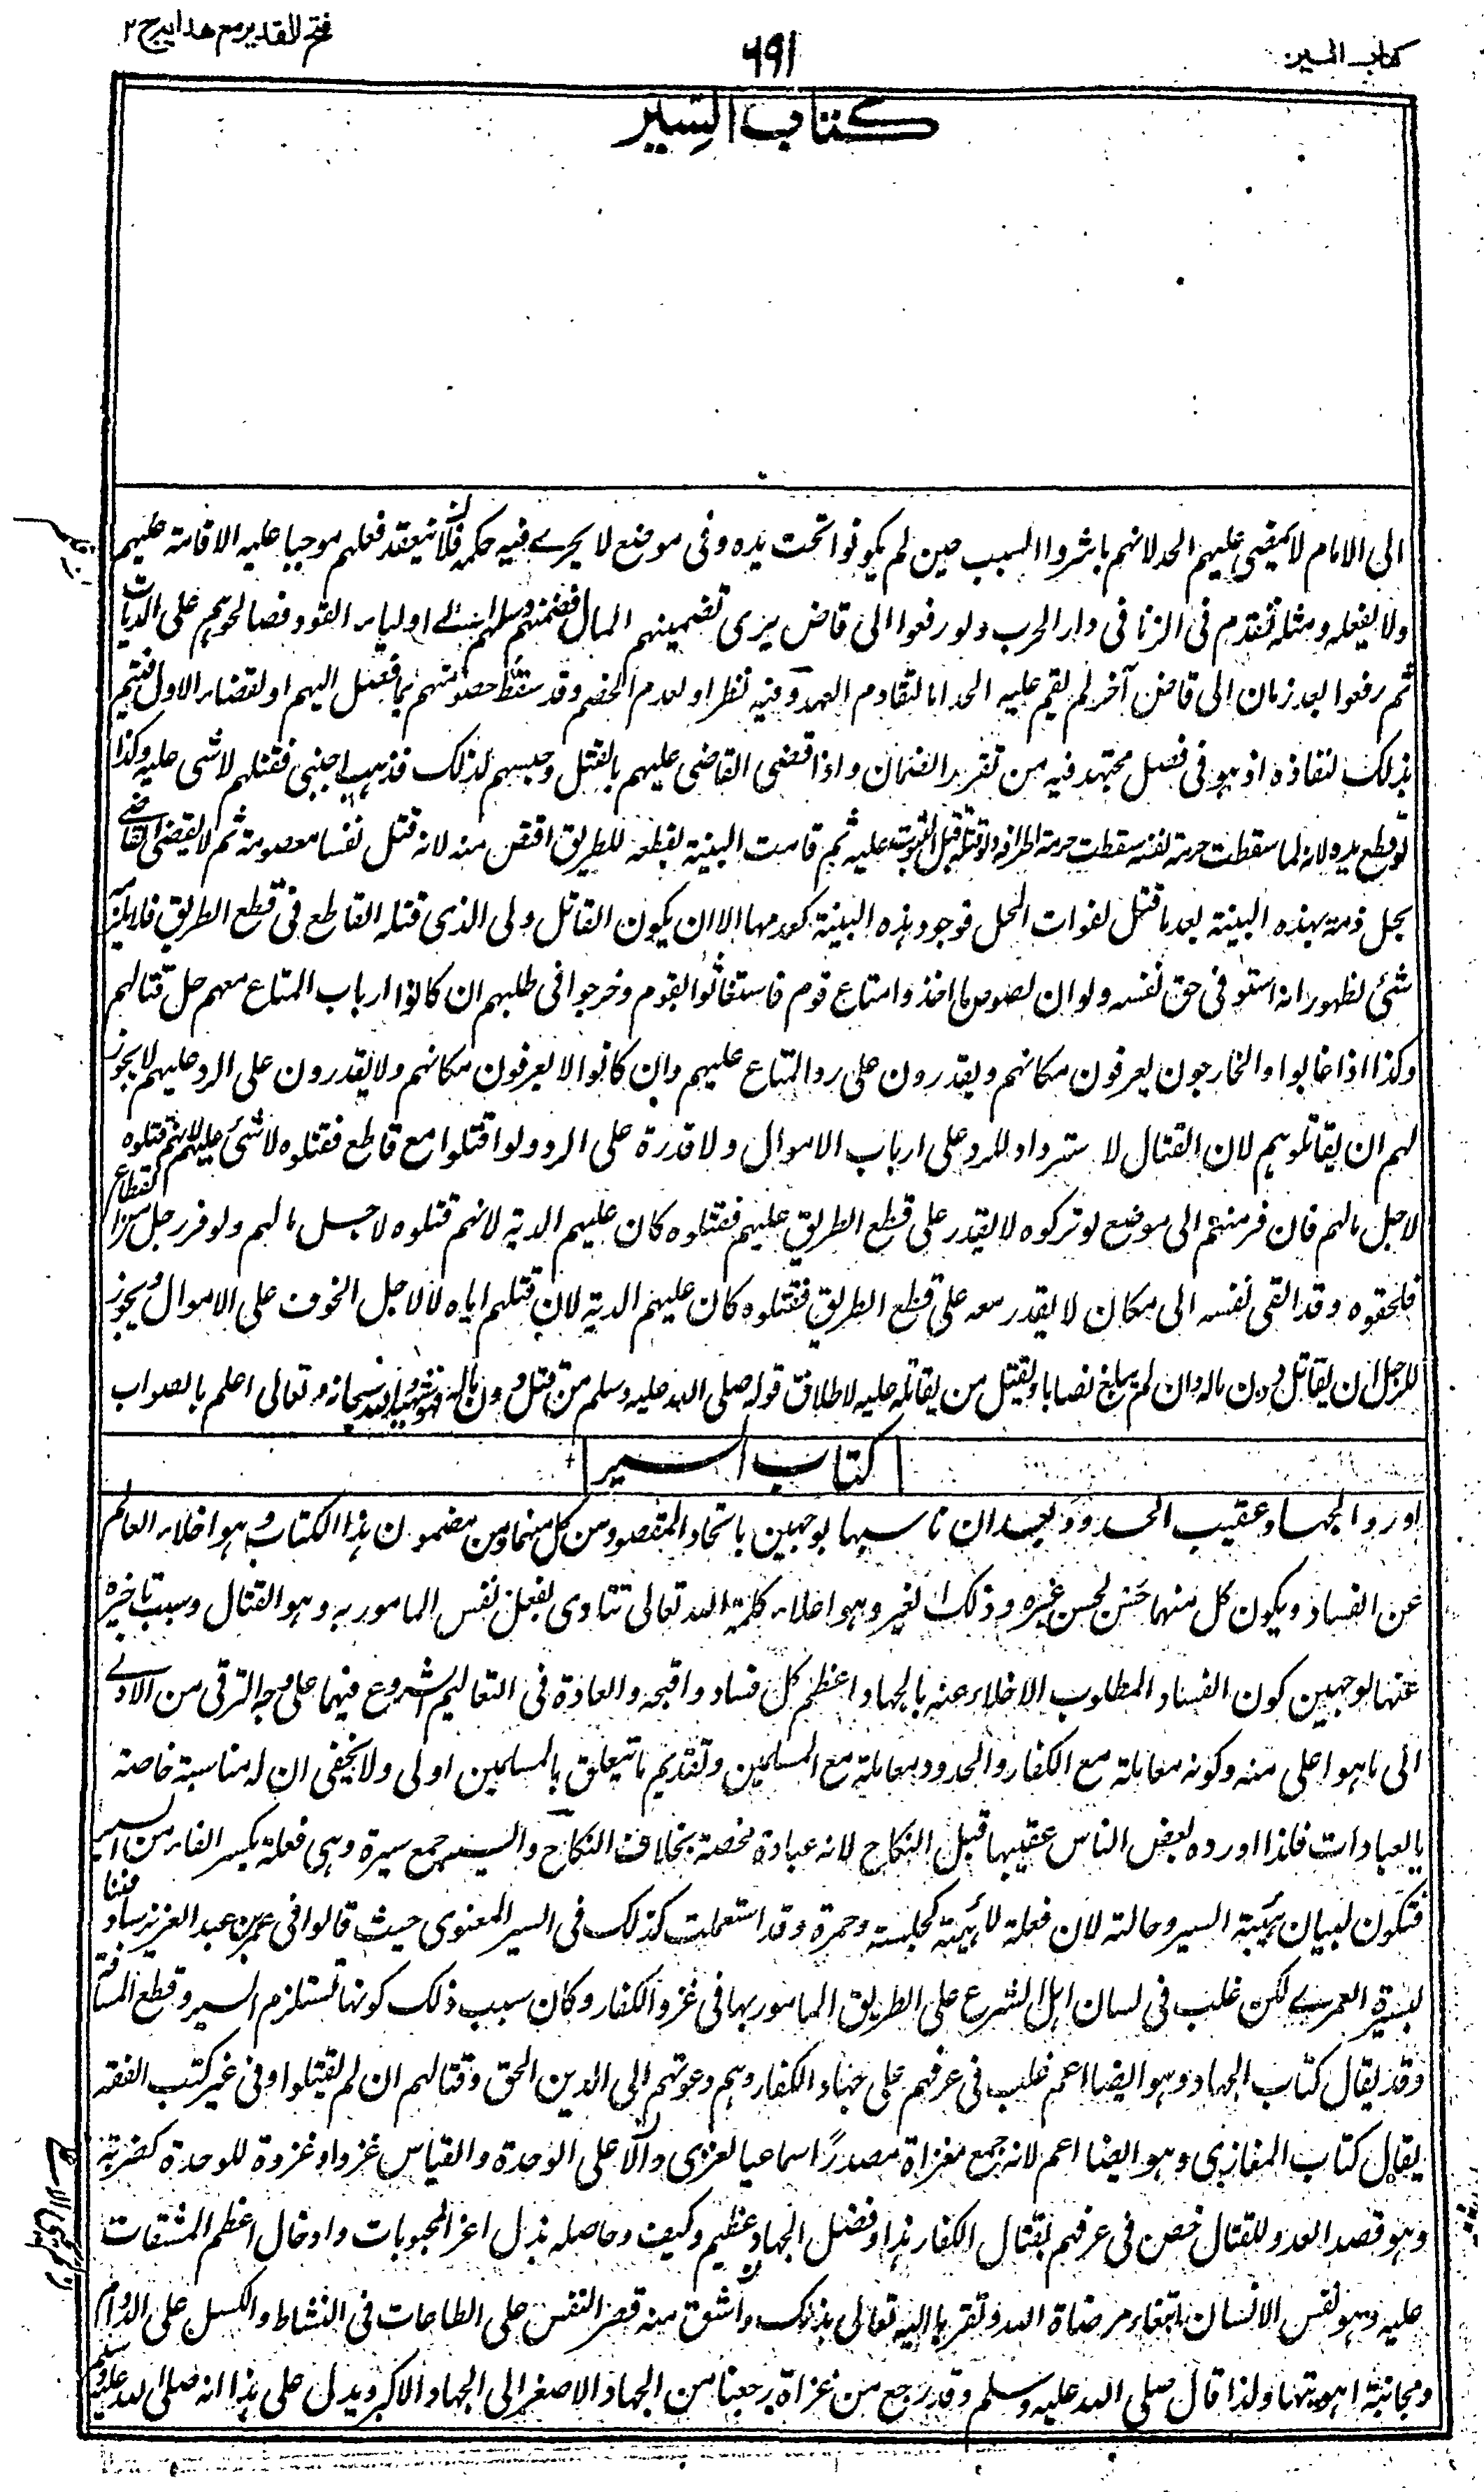 كتاب السير
٦٩١
فتح القدير مع هدايه ج ٢
كتاب السير
الى الامام لا يقضى عليهم الحد لانهم باشروا السبب حين لم يكونوا تحت يده وفى موضع لا يجرى فيه حكمه فلا ينعقد فعلهم موجبا عليه الاقامة عليهم
ولا يفعله ومثله تقدم فى الزنا فى دار الحرب ولو رفعوا الى قاض يرى تضمينهم المال فضمنهم وسلمهم الى اولياء القود فصالحوهم على الديات
ثم رفعوا بعد زمان الى قاض آخر لم يقم عليه الحد اما لتقادم العهد وفيه نظر او لعدم الخصم وقد سقط خصومتهم بما فعل اليهم او لقضاء الاول فيتم
بذلك لنفاذه اذ هو فى فصل مجتهد فيه من تقرير الضمان واذا قضى القاضى عليهم بالقتل وحبسهم لذلك فذهب اجنبى فقتلهم لا شى عليه وكذا
لو قطع يده لانه لما سقطت حرمة نفسه سقطت حرمة اطرافه ولو قتله قبل الثبوت عليه ثم قامت البينة بقطعه للطريق اقتص منه لانه قتل نفسا معصومة ثم لا يقضى القاضى
بحل دمه بهذه البينة بعد ما قتل لفوات المحل فوجود هذه البينة كعدمها الا ان يكون القاتل ولى الذى قتله القاطع فى قطع الطريق فلا يلزمه
شئ لظهور انه استوفى حق نفسه ولو ان لصوصا اخذوا متاع قوم فاستغاثوا بقوم وخرجوا فى طلبهم ان كانوا ارباب المتاع معهم حل قتالهم
وكذا اذا غابوا والخارجون يعرفون مكانهم ويقدرون على رد المتاع عليهم وان كانوا لا يعرفون مكانهم ولا يقدرون على الرد عليهم لا يجوز
لهم ان يقاتلوهم لان القتال لاسترداد للرد على ارباب الاموال ولا قدرة على الرد ولو اقتتلوا مع قاطع فقتلوه لا شئ عليهم لانهم قتلوه
لاجل مالهم فان فر منهم الى موضع لو تركوه لا يقدر على قطع الطريق عليهم فقتلوه كان عليهم الدية لانهم قتلوه لا جل مالهم ولو فر رجل من القطاع
فلحقوه وقد القى نفسه الى مكان لا يقدر معه على قطع الطريق فقتلوه كان عليهم الدية لان قتلهم اياه لا لاجل الخوف على الاموال ويجوز
للرجل ان يقاتل دون ماله وان لم يبلغ نصابا ويقتل من يقاتله عليه لاطلاق قوله صلى الله عليه وسلم من قتل دون ماله فهو شهيد والله سبحانه وتعالى اعلم بالصواب
كتاب السير
اورد الجهاد عقيب الحدود بعد ان ناسبها بوجهين باتحاد المقصود من كل منهما ومن مضمون هذا الكتاب وهو اخلاء العالم
عن الفساد وبكون كل منهما حسن لحسن غيره وذلك الغير وهو اعلاء كلمة الله تعالى تتأدى بفعل نفس المامور به وهو القتال وسبب تاخيره
عنها لوجهين كون الفساد المطلوب الاخلاء عنه بالجهاد اعظم كل فساد واقبحه والعادة فى التعاليم الشروع فيها على وجه الترقى من الادنى
الى ما هو اعلى منه وكونه معاملة مع الكفار والحدود معاملة مع المسلمين وتقديم ما يتعلق بالمسلمين اولى ولا يخفى ان له مناسبة خاصة
بالعبادات فلذا اورده بعض الناس عقيبها قبل النكاح لانه عبادة محضة بخلاف النكاح والسير جمع سيرة وهى فعلة بكسر الفاء من السير
فتكون لبيان هيئة السير وحالته لان فعلة للهيئة كجلسة وخمرة وقد استعملت كذلك فى السير المعنوى حيث قالوا فى عمر بن عبد العزيز سار فينا
بسيرة العمرين لكن غلب فى لسان اهل الشرع على الطريق المامور بها فى غزو الكفار وكان سبب ذلك كونها تستلزم السير وقطع المسافة
وقد يقال كتاب الجهاد وهو ايضا اعم فغلب فى عرفهم على جهاد الكفار وهم دعوتهم الى الدين الحق وقتالهم ان لم يقبلوا وفى غير كتب الفقه
يقال كتاب المغازى وهو ايضا اعم لانه جمع مغزاة مصدرًا سماعيا لغزى دالا على الوحدة والقياس غزو وغزوة للوحدة كضربة
وهو قصد العدو للقتال خص فى عرفهم بقتال الكفار هذا وفضل الجهاد عظيم وكيف وحاصله بذل اعز المحبوبات وادخال اعظم المشقات
عليه وهو نفس الانسان ابتغاء مرضاة الله وتقربا اليه تعالى بذلك واشق منه قصر النفس على الطاعات فى النشاط والكسل على الدوام
ومجانبة اهويتها ولذا قال صلى الله عليه وسلم وقد رجع من غزاة رجعنا من الجهاد الاصغر الى الجهاد الاكبر ويدل على هذا انه صلى الله عليه وسلم